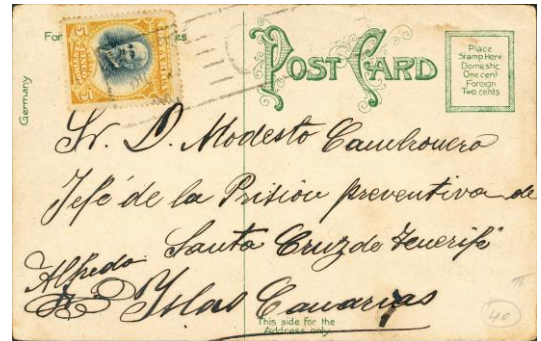 For
es
POST CARD
Place
Stamp Here
Domestic
One cent
Foreign
Two cents
Germany
Sr. D. Modesto Cambronero
Jefe de la Prision preventiva de
Santa Cruz de Tenerife
Alfredo
Islas Canarias
This side for the
Address only.
40